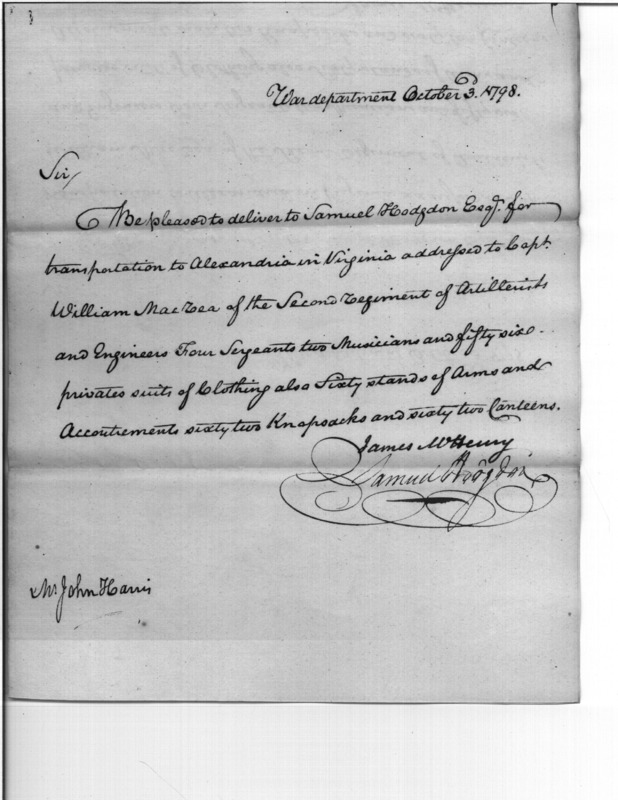 War department October 3d. 1798.
Sir,
Be pleased to deliver to Samuel Hodgdon Esqr. for
transportation to Alexandria in Virginia addressed to Capt.
William MacRea of the Second Regiment of Artillerists
and Engineers Four Sergeants two Musicians and fifty six
privates suits of Clothing also Sixty stands of Arms and
Accoutrements sixty two Knapsacks and sixty two Canteens.
James McHenry
Samuel Hodgdon
Mr John Harris